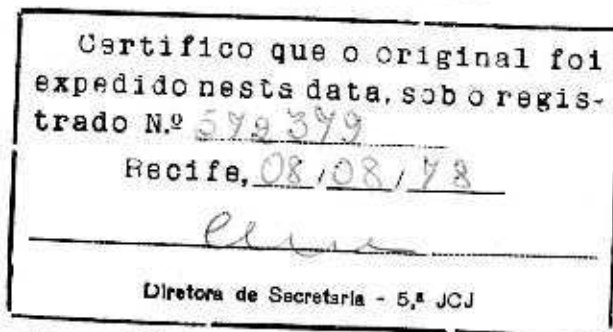 Certifico que o original foi
expedido nesta data, sob o regis-
trado N.º 579379
Recife, 08/08/78
Diretora de Secretaria - 5,ª JCJ